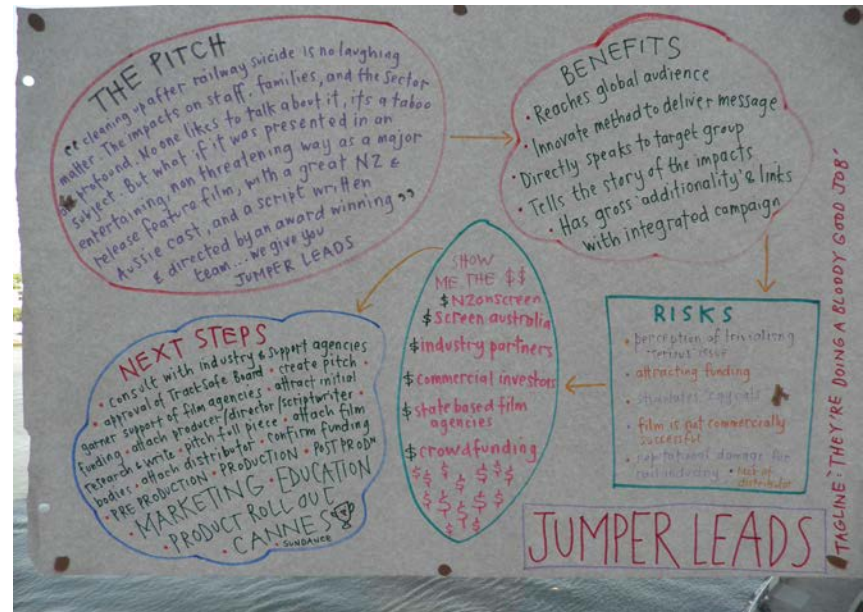 THE PITCH
"cleaning up after railway suicide is no laughing
matter. The impacts on staff, families, and the sector
are profound. No one likes to talk about it, its a taboo
subject. But what if it was presented in an
entertaining, non threatening way as a major
release feature film, with a great NZ &
Aussie cast, and a script written
& directed by an award winning
team... we give you "
JUMPER LEADS
BENEFITS
• Reaches global audience
• Innovate method to deliver message
• Directly speaks to target group
• Tells the story of the impacts
• Has gross 'additionality' & links
with integrated campaign
RISKS
• perception of trivialising
serious issue
• attracting funding
• stimulates 'copycats'
• film is not commercially
successful
• reputational damage for
rail industry • lack of
distributor
SHOW
ME THE $$
$ NZonscreen
$ Screen australia
$ industry partners
$ commercial investors
$ state based film
agencies
$ crowdfunding
$ $ $ $ $ $
$ $ $ $ $
$ $ $ $
$ $
NEXT STEPS
• consult with industry & support agencies
• approval of TrackSafe Board • create pitch •
garner support of film agencies • attract initial
funding • attach producer/director/scriptwriter •
research & write • pitch full piece • attach film
bodies • attach distributor • confirm funding
• PRE PRODUCTION • PRODUCTION • POST PRODN
MARKETING • EDUCATION
PRODUCT ROLL OUT
• CANNES
• SUNDANCE
JUMPER LEADS
TAGLINE: 'THEY'RE DOING A BLOODY GOOD JOB'